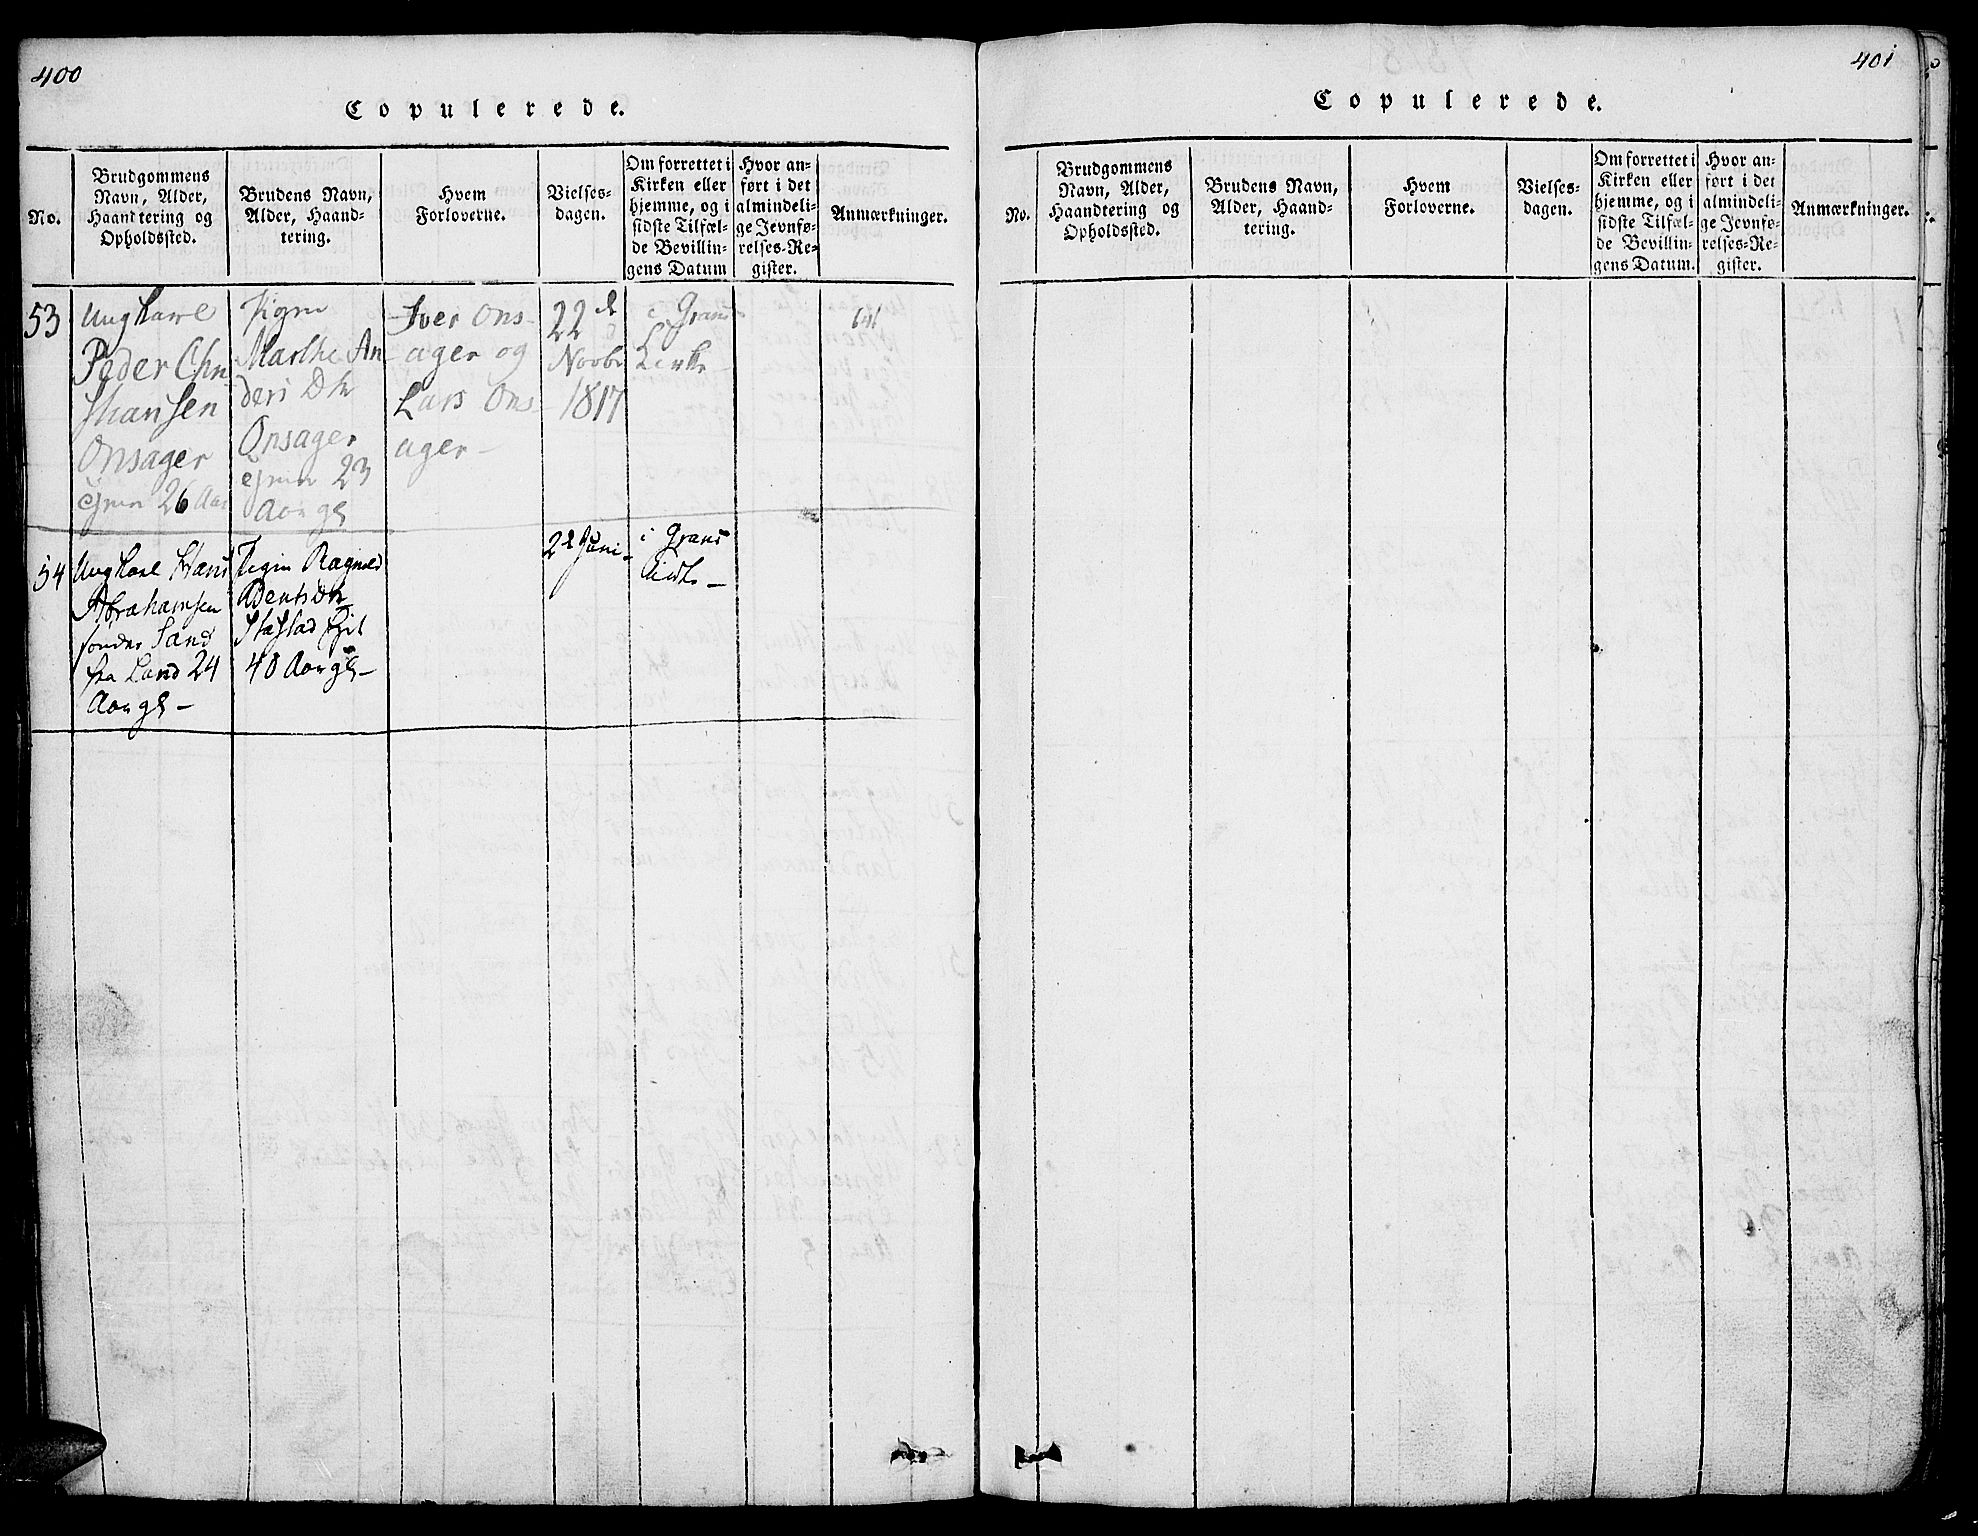 400
Copulerede.
No.
Brudgommens
Navn, Alder,
Haandtering og
Opholdssted.
Brudens Navn,
Alder, Haand-
tering.
Hvem
Forloverne.
Vielses-
dagen.
Om forrettet i
Kirken eller
hjemme, og i
sidste Tilfæl-
de Bevillin-
gens Datum
Hvor an-
ført i det
almindeli-
ge Jevnfø-
relses-Re-
gister.
Anmærkninger.
53
Ungkarl
Peder Chri
sthansen
Onsager
26 Aar
Pigen
Marthe An
ders D
Onsager
23
Aar gl
Iver Ons-
ager og
Lars Ons-
ager-
22d
Novbr
1817
i Grans
Kirke
54
Ungkarl Hans
Abrahamsen
sønder Sand
fra Land 24
Aar gl-
Pigen Ragnild
40 Aar gl-
22 Juni-
i Grans
Kirke-
401
Copulerede.
No.
Brudgommens
Navn, Alder,
Haandtering og
Opholdssted.
Brudens Navn,
Alder, Haand-
tering.
Hvem
Forloverne.
Vielses-
dagen.
Om forrettet i
Kirken eller
hjemme, og i
sidste Tilfæl-
de Bevillin-
gens Datum.
Hvor an-
ført i det
almindeli-
ge Jevnfø-
relses-Re-
gister.
Anmærkninger.